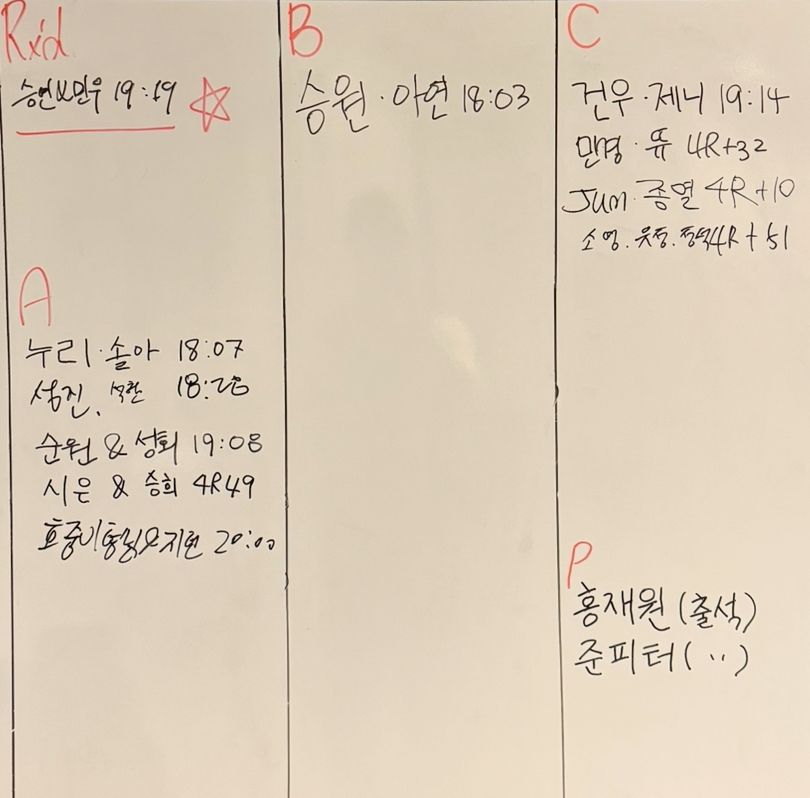 Rxd
승언&민우 19:19
A
누리·솔아 18:07
성진, 석환 18:28
순원 & 성회 19:08
시은 & 승희 4R49
지현 20:00
B
승원·아연 18:03
C
건우·제니 19:14
만영·뜌 4R+32
Jun·종열 4R+10
소영. 4R+51
P
홍재원 (출석)
준피터 (〃)